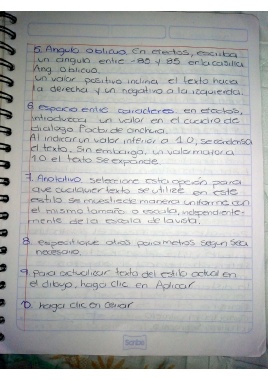 5. Angulo oblicuo. En efectos, escriba
un angulo entre -85 y 85 en la casilla
Ang. oblicuo.
un valor positivo inclina el texto hacia
la derecha y un negativo a la izquierda.
6 espacio entre caracteres. en efectos,
introduzca un valor en el cuadro de
dialogo Factor de anchura.
Al indicar un valor inferior a 1.0, se condensa
el texto. Sin embargo, un valor mayor a
1.0 el texto se expande.
7. Anotativo. seleccione esta opción para
que cualquier texto que se utilize en este
estilo se muestre de manera uniforme con
el mismo tamaño o escala, independiente-
mente de la escala de la vista.
8. especifique otros parametros segun sea
necesario.
9. Para actualizar texto del estilo actual en
el dibujo, haga clic en Aplicar
10. haga clic en Cerrar
Scribe